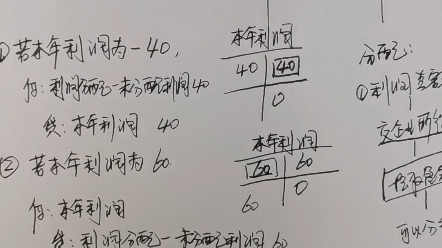 ① 若本年利润为-40，
借：利润分配—未分配利润40
贷：本年利润 40
本年利润
40 40
0
② 若本年利润为60
借：本年利润 60
贷：利润分配—未分配利润 60
本年利润
60 60
0
分配：
①利润